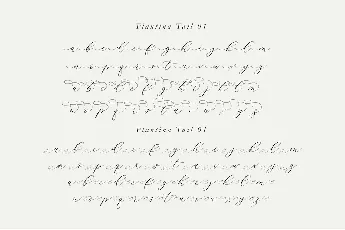 Floating Tail 01
a b c d e f g h i j k l m
n o p q r s t u v w x y z
a b c d e f g h i j k l m
n o p q r s t u v w x y z
Floating Tail 01
a b c d e f g h i j k l m
n o p q r s t u v w x y z
a b c d e f g h i j k l m
n o p q r s t u v w x y z